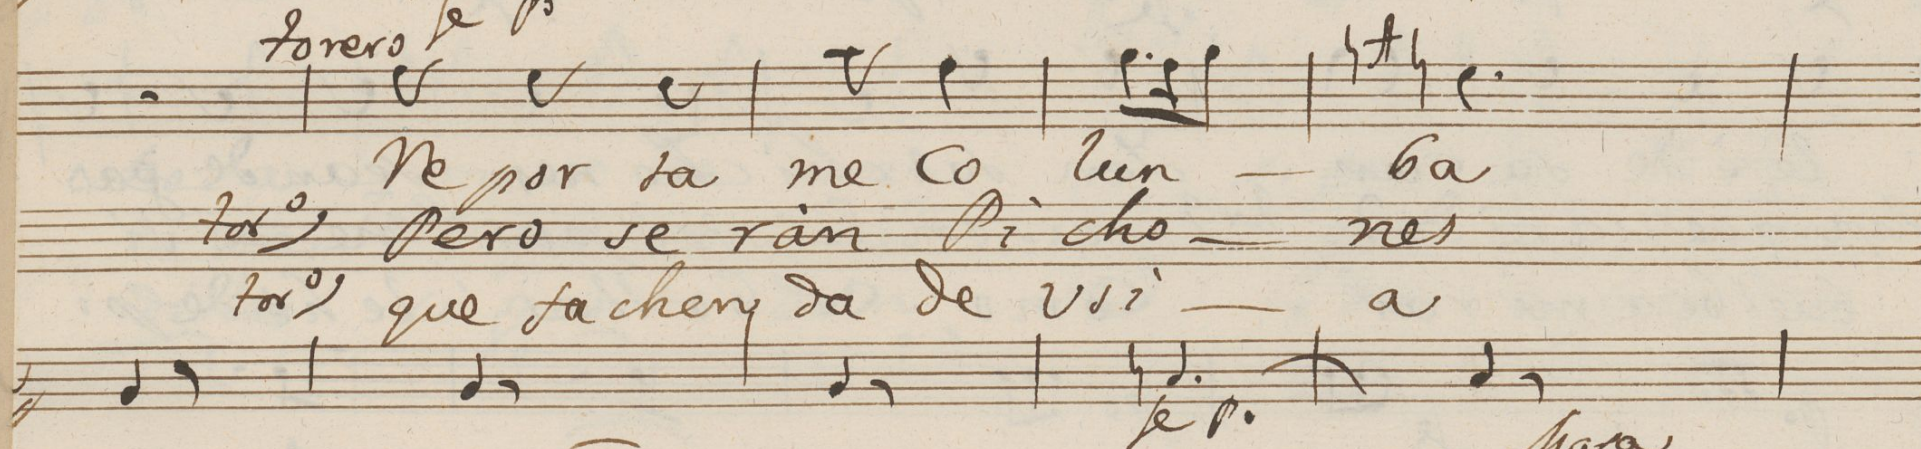 torero fe p
Ne por ta me Co lun — ba
tor.º) Pero se ràn Pi cho — nes
tor.º) que fa chen da de Vsi — a
fe p.